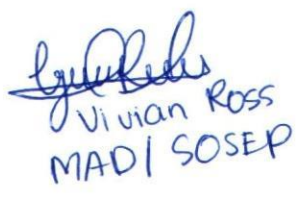 Vivian Ross
MAD/ SOSEP